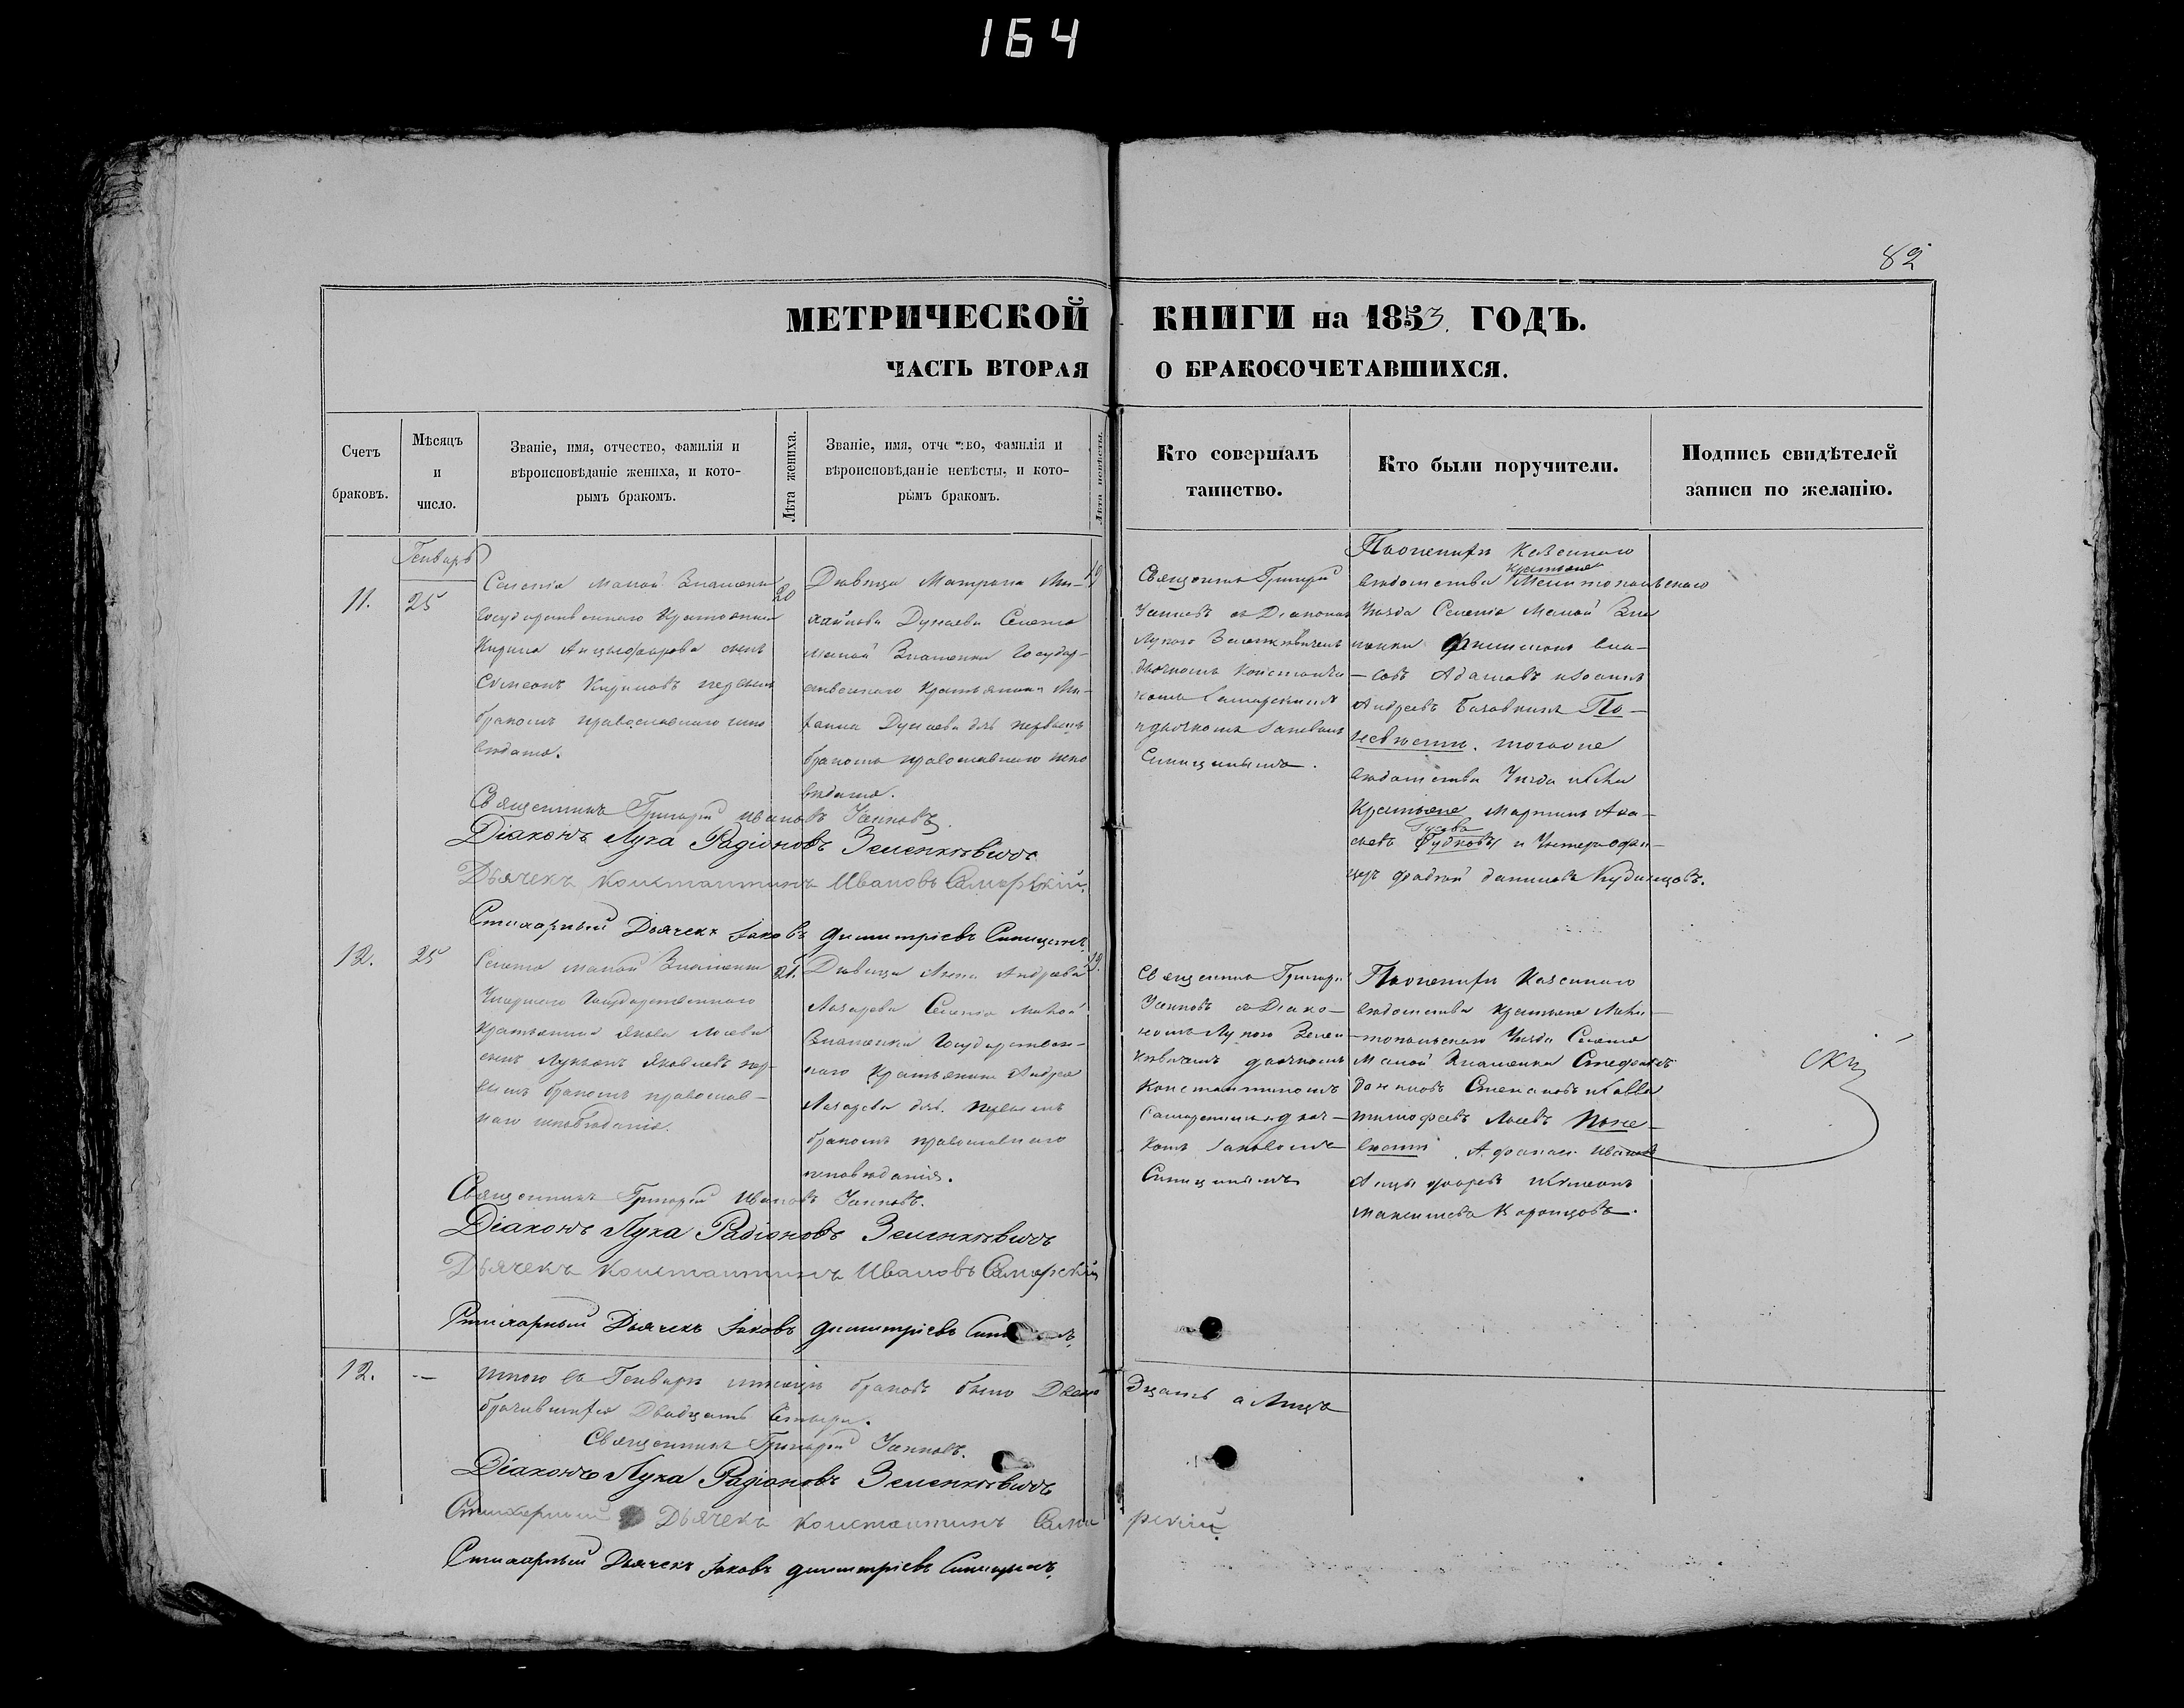 164
82
МЕТРИЧЕСКОЙ КНИГИ на 1853. ГОДЪ.
ЧАСТЬ ВТОРАЯ О БРАКОСОЧЕТАВШИХСЯ.
Счетъ
браковъ.
Мѣсяцъ
и
число.
Званіе, имя, отчество, фамилія и
вѣроисповѣданіе жениха, и кото-
рымъ бракомъ.
Лѣта жениха.
Званіе, имя, отчество, фамилія и
вѣроисповѣданіе невѣсты, и кото-
рымъ бракомъ.
Лѣта невѣсты.
Кто совершалъ
таинство.
Кто были поручители.
Подпись свидѣтелей
записи по желанію.
Генварь
11.
25
Селенія Малой Знаменки
Государственнаго Крестьянина
Кирила Анцыфорова сынъ
Симеонъ Кириловъ первымъ
бракомъ православнаго испо
вѣданія.
20
Дѣвица Матрона Ми-
хайлова Дунаева Селенія
Малой Знаменки Государ-
ственнаго Крестьянина Ми-
хаила Дунаева дчь первымъ
бракомъ православнаго испо
вѣданія.
19
Священникъ Григорій
съ Діакономъ
Лукою Зеленкѣвичемъ
дьячкомъ Константи
номъ Самарскимъ
и дьячкомъ Іаковомъ
Синицынымъ.
По женихѣ Казеннаго
крестьяне
вѣдомства Мелитопольскаго
Уѣзда Селенія Малой Зна
менки Филимонъ Вла-
совъ Адамовъ и Іоаннъ
Андреевъ По-
невѣстѣ. тогоже
вѣдомства Уѣзда и Села
Крестьяне Мартинъ Ага-
Гусева
и Унтеръ офи-
церъ Фадѣй Даниловъ Кудинцовъ.
Священникъ Григорій Ивановъ
Діаконъ Лука Радіоновъ Зеленкѣвичъ
Дьячекъ Константинъ Ивановъ Самарскій.
Стихарный Дьячекъ Іаковъ Димитріевъ Синицынъ.
12.
25
Селенія Малой Знаменки
Умершаго Государственнаго
Крестьянина Якова Лосева
сынъ Лукьянъ Яковлевъ пер-
вымъ бракомъ православ-
наго исповѣданія.
21.
Дѣвица Анна Андреева
Лазарева Селенія Малой
Знаменки Государствен-
наго Крестьянина Андрея
Лазарева дчь. первымъ
бракомъ православнаго
исповѣданія.
19.
Священникъ Григорій
съ Діако-
номъ Лукою Зелен
кѣвичемъ дьячкомъ
Константиномъ
Самарскимъ и дьяч-
комъ Іаковомъ
Синицынымъ
По женихѣ Казеннаго
вѣдомства крестьяне Мели-
топольскаго Уѣзда Селенія
Малой Знаменки Стефанъ
Даниловъ Степановъ и Савва
Тимофеевъ Лосевъ Поне-
вѣстѣ. Афанасій Ивановъ
Анцыфоровъ и Симеонъ
Максимовъ Воронцовъ.
Священникъ Григорій Ивановъ
Діаконъ Лука Радіоновъ Зеленкѣвичъ
Дьячекъ Константинъ Ивановъ Самарскій
Стихарный Дьячекъ Іаковъ Димитріевъ
12.
Итого въ Генварѣ мѣсяцѣ браковъ было Двѣна дцать а лицъ
брачившихся Двадцать Четыри.
Священникъ Григорій
Діаконъ Лука Радіоновъ Зеленкѣвичъ
Стихарный Дьячекъ Константинъ Сама рскій.
Стихарный Дьячекъ Іаковъ Димитріевъ Синицынъ.